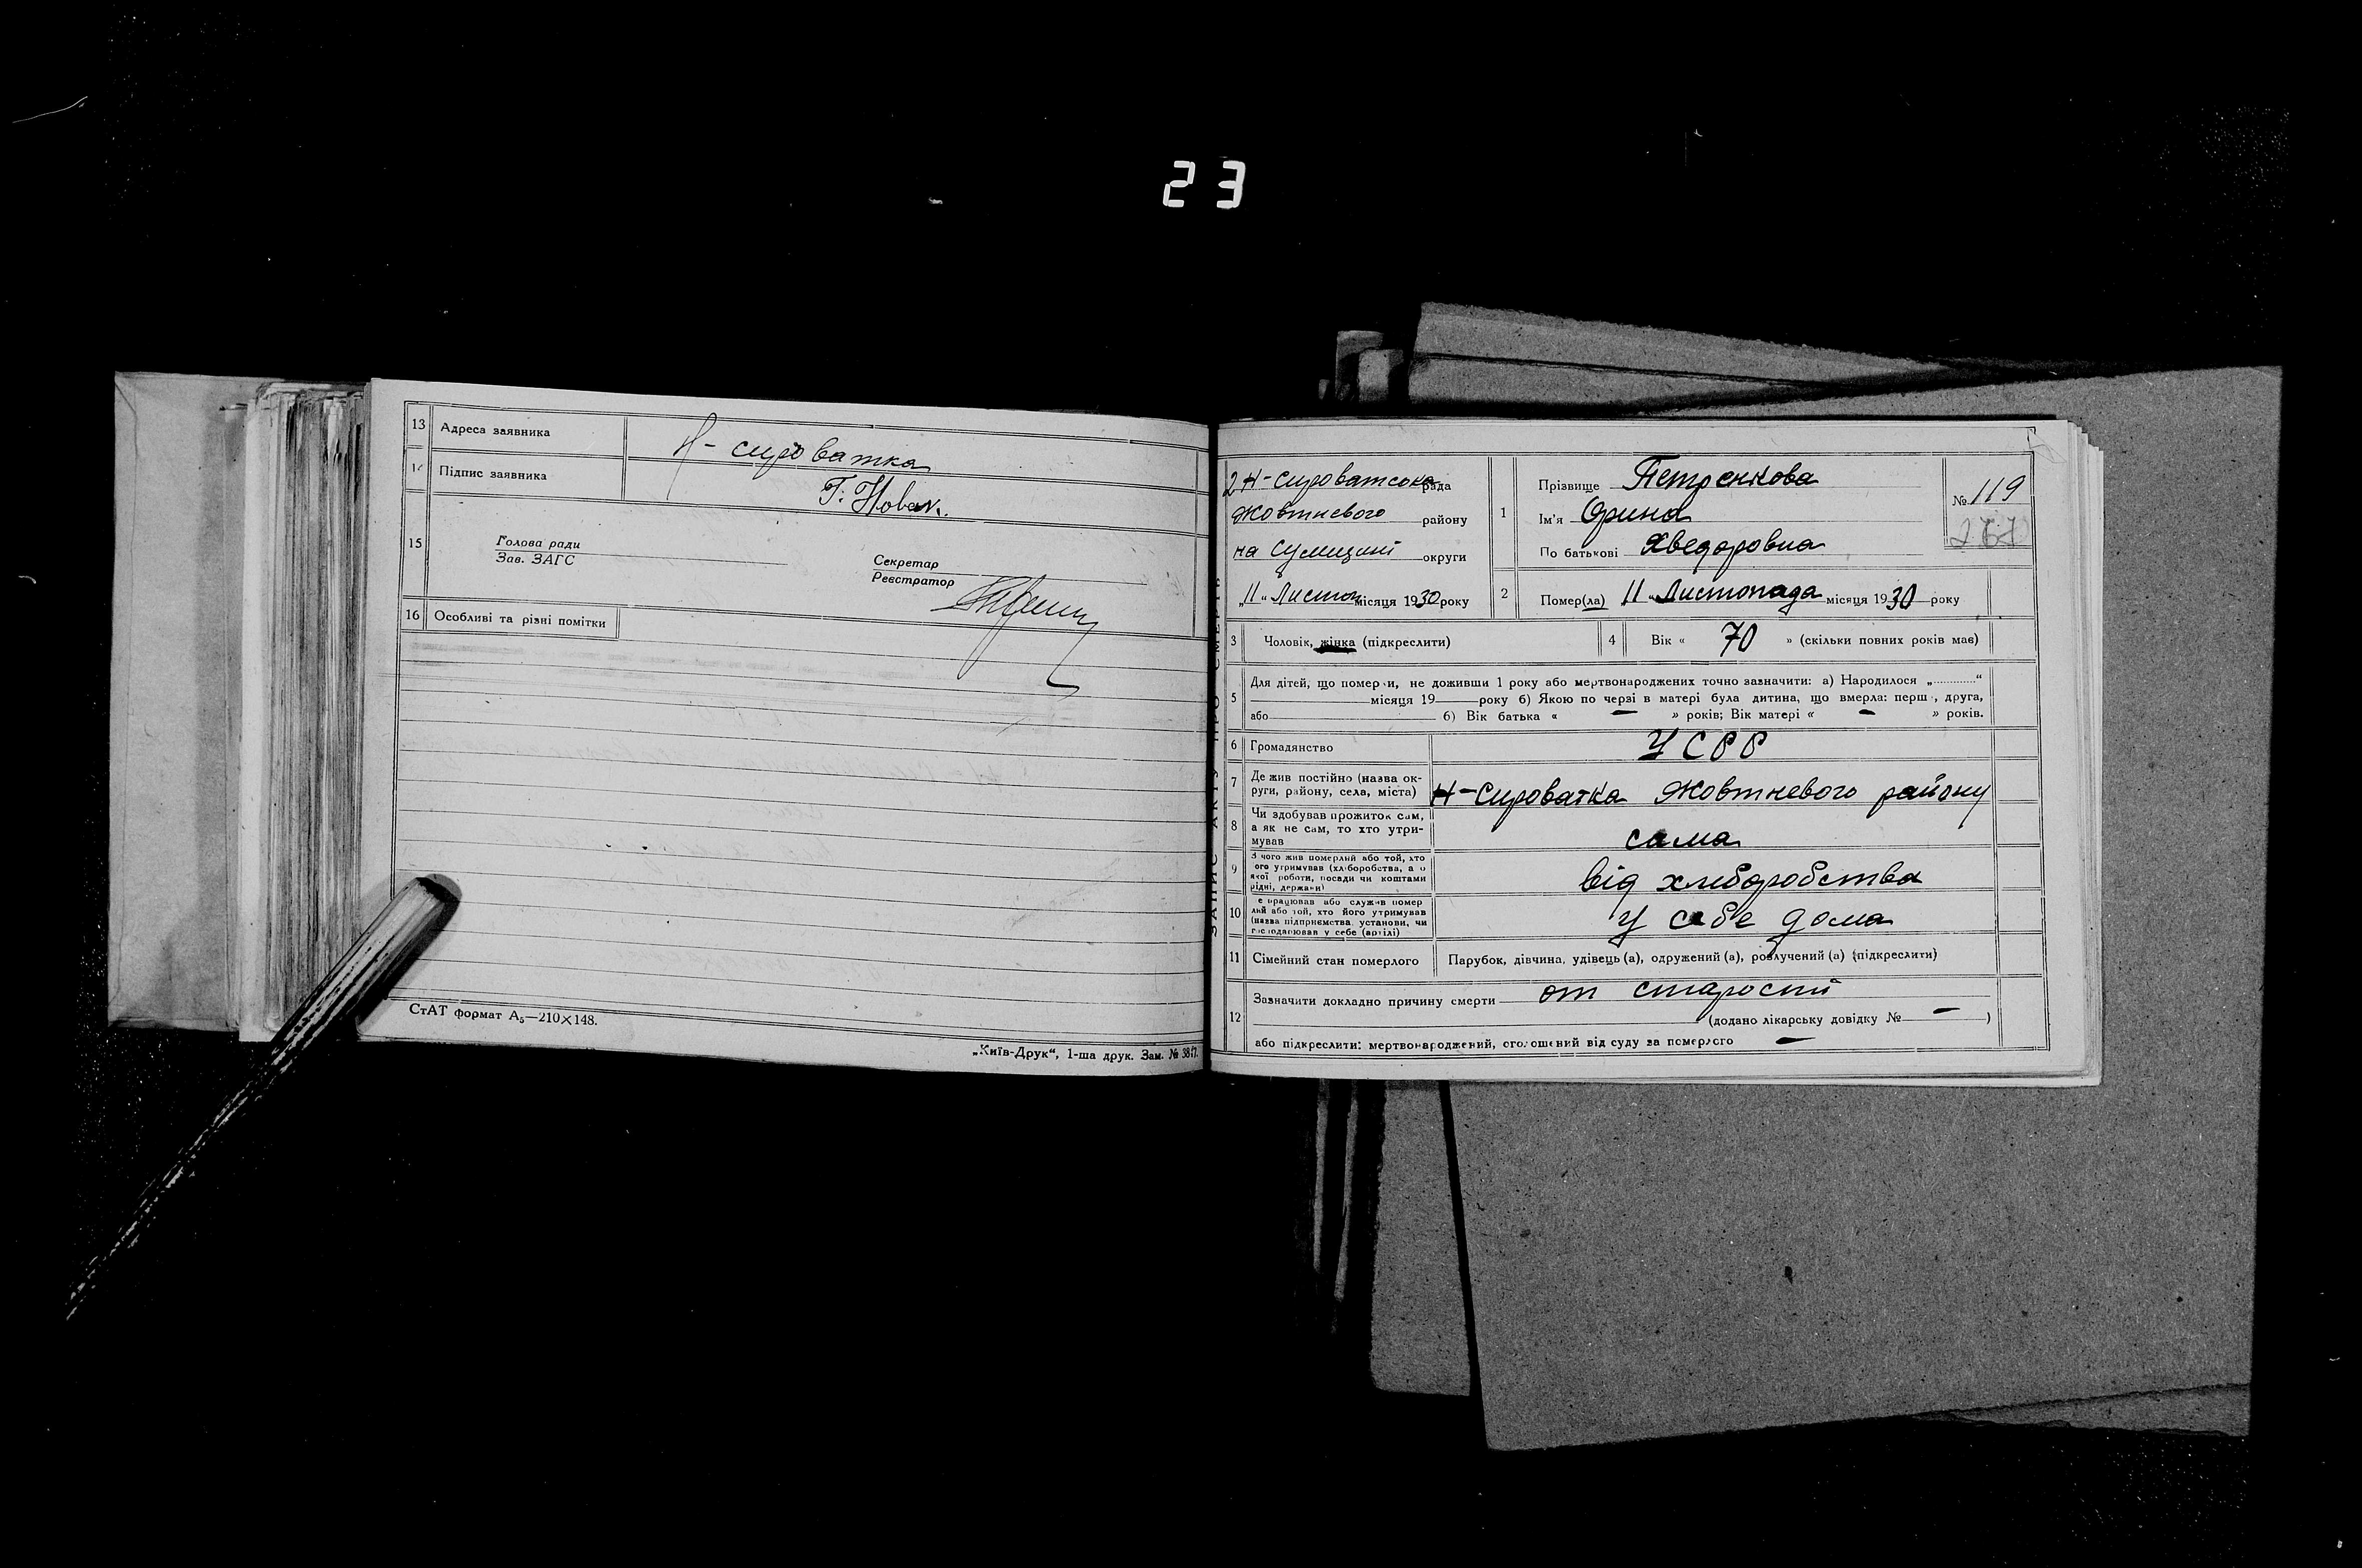 23
13 Адреса заявника Н-сироватка
14 Підпис заявника Г. Новак.
15 Голова ради
Зав. ЗАГС
Секретар
Реєстратор
16 Особливі та різні помітки
СтАТ формат А₅—210×148.
„Київ-Друк“, 1-ша друк. Зам. №
ЗАПИС АКТУ ПРО СМЕРТЬ
2 Н-Сироватська рада
Жовтневого району
на Сумщині округи
„11“ Листоп місяця 1930 року
1 Прізвище Петренкова
Ім'я Орина
По батькові Хведоровна
№ 119
267
2 Помер(ла) 11 „Листопада місяця 1930 року
3 Чоловік, жінка (підкреслити)
4 Вік « 70 » (скільки повних років має)
5 Для дітей, що померли, не доживши 1 року або мертвонароджених точно зазначити: а) Народилося „............“
місяця 19 року б) Якою по черзі в матері була дитина, що вмерла: перша, друга,
або б) Вік батька « — » років; Вік матері « — » років.
6 Громадянство УСРР
7 Де жив постійно (назва ок-
руги, району, села, міста) Н-Сироватка Жовтневого району
8 Чи здобував прожиток сам,
а як не сам, то хто утри-
мував сама
9 З чого жив померлий або той, хто
його утримував (хліборобства, а о
якої роботи, посади чи коштами
рідні, держави) від хліборобства
10 Де працював або служив помер
лий або той, хто його утримував
(назва підприємства, установи, чи
господарював у себе (артілі) у себе дома
11 Сімейний стан померлого Парубок, дівчина, удівець (а), одружений (а), розлучений (а) (підкреслити)
12 Зазначити докладно причину смерти от старости
(додано лікарську довідку № — )
або підкреслити: мертвонароджений, оголошений від суду за померлого —